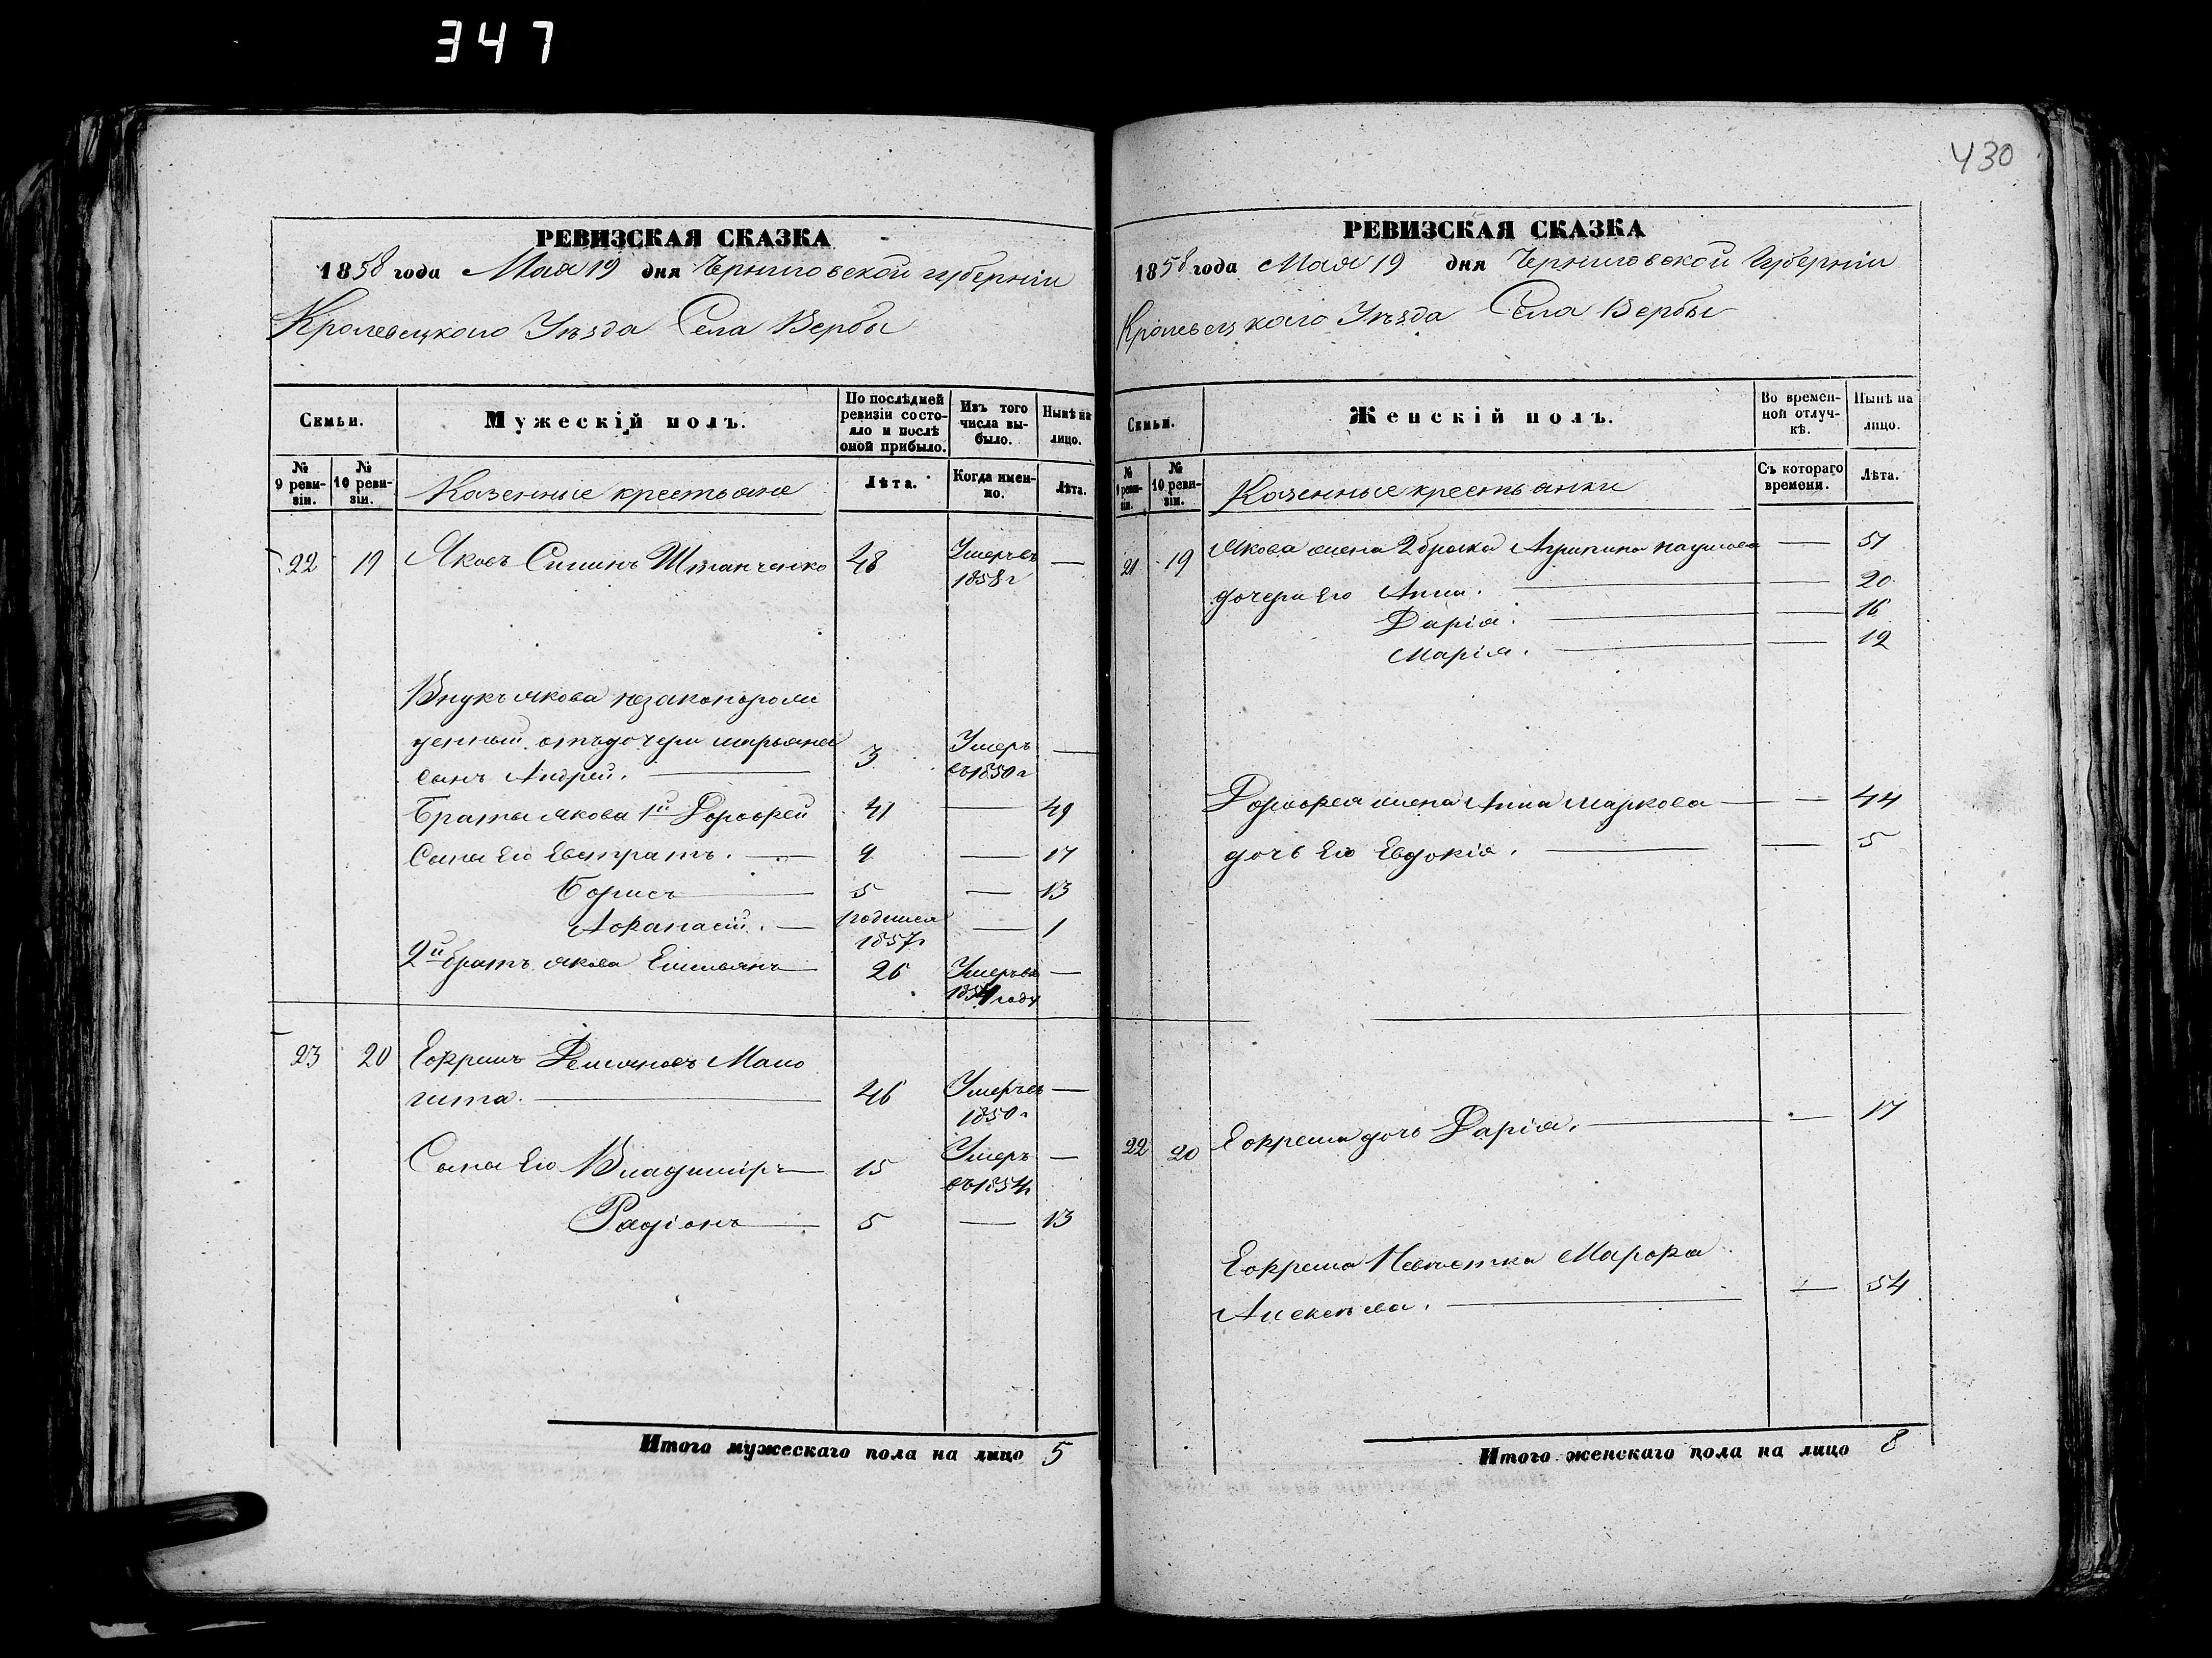 347
430
РЕВИЗСКАЯ СКАЗКА
1858 года Мая 19 дня Черниговской губерніи
Кролевецкого Уѣзда Села Вербы
Семьи.
Мужескій полъ.
По послѣдней ревизіи состояло и послѣ оной прибыло.
Изъ того числа выбыло.
Нынѣ на лицо.
№ 9 ревизіи.
№ 10 ревизіи.
Казенные крестьяне
Лѣта.
Когда именно.
Лѣта.
22 19 Яковъ 48 Умеръ въ —
1858 г
Внукъ Якова незаконорож
денный отъ дочери Марьяны 3 Умеръ —
сынъ Андрей. — въ 1850 г
Братья Якова 1й Дорофей 41 — 49
Сыны Его Евстратъ. — 9 — 17
Борисъ — 5 — 13
Афанасій. — родился — 1
1857г
2й братъ Якова Емельянъ — 26 Умеръ въ —
году
23 20 Ефремъ Демяновъ
— 46 Умеръ въ —
1850 г
Сыны Его Владиміръ — 15 Умеръ —
въ 1854г
Радіонъ — 5 — 13
Итого мужескаго пола на лицо 5
РЕВИЗСКАЯ СКАЗКА
1858 года Мая 19 дня Черниговской Губерніи
Кролевецкаго Уѣзда Села Вербы
Семьи.
Женскій полъ.
Во временной отлучкѣ.
Нынѣ на лицо.
№ 9 ревизіи.
№ 10 ревизіи.
Казенные крестьянки
Съ котораго времени.
Лѣта.
21 19 Якова жена 2 брака Агрипина Наумова — 51
дочери Его Анна. — — 20
Дарія. — — 16
Марія. — — 12
Дорофея жена Анна Маркова — — 44
дочь Его Евдокія. — — 5
22 20 Ефрема дочь Дарія. — — 17
Ефрема Невѣстка Марфа
Алексѣева. — — 54
Итого женскаго пола на лицо 8